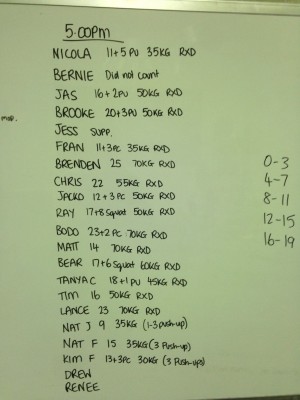 5:00pm
NICOLA 11+5 PU 35KG RXD
BERNIE Did not count
JAS 16+2PU 50KG RXD
BROOKE 20+3PU 50KG RXD
JESS SUPP.
FRAN 11+3PC 35KG RXD
BRENDEN 25 70KG RXD
CHRIS 22 55KG RXD
JACKO 12+3PC 50KG RXD
RAY 17+8 Squat 50KG RXD
BODO 23+2PC 70KG RXD
MATT 14 70KG RXD
BEAR 17+6 Squat 60KG RXD
TANYA C 18+1 PU 45KG RXD
TIM 16 50KG RXD
LANCE 23 70KG RXD
NAT J 9 35KG (1-3 push-up)
NAT F 15 35KG (3 Push-up)
KIM F 13+3PC 30KG (3 Push-ups)
DREW
RENEE
0-3
4-7
8-11
12-15
16-19